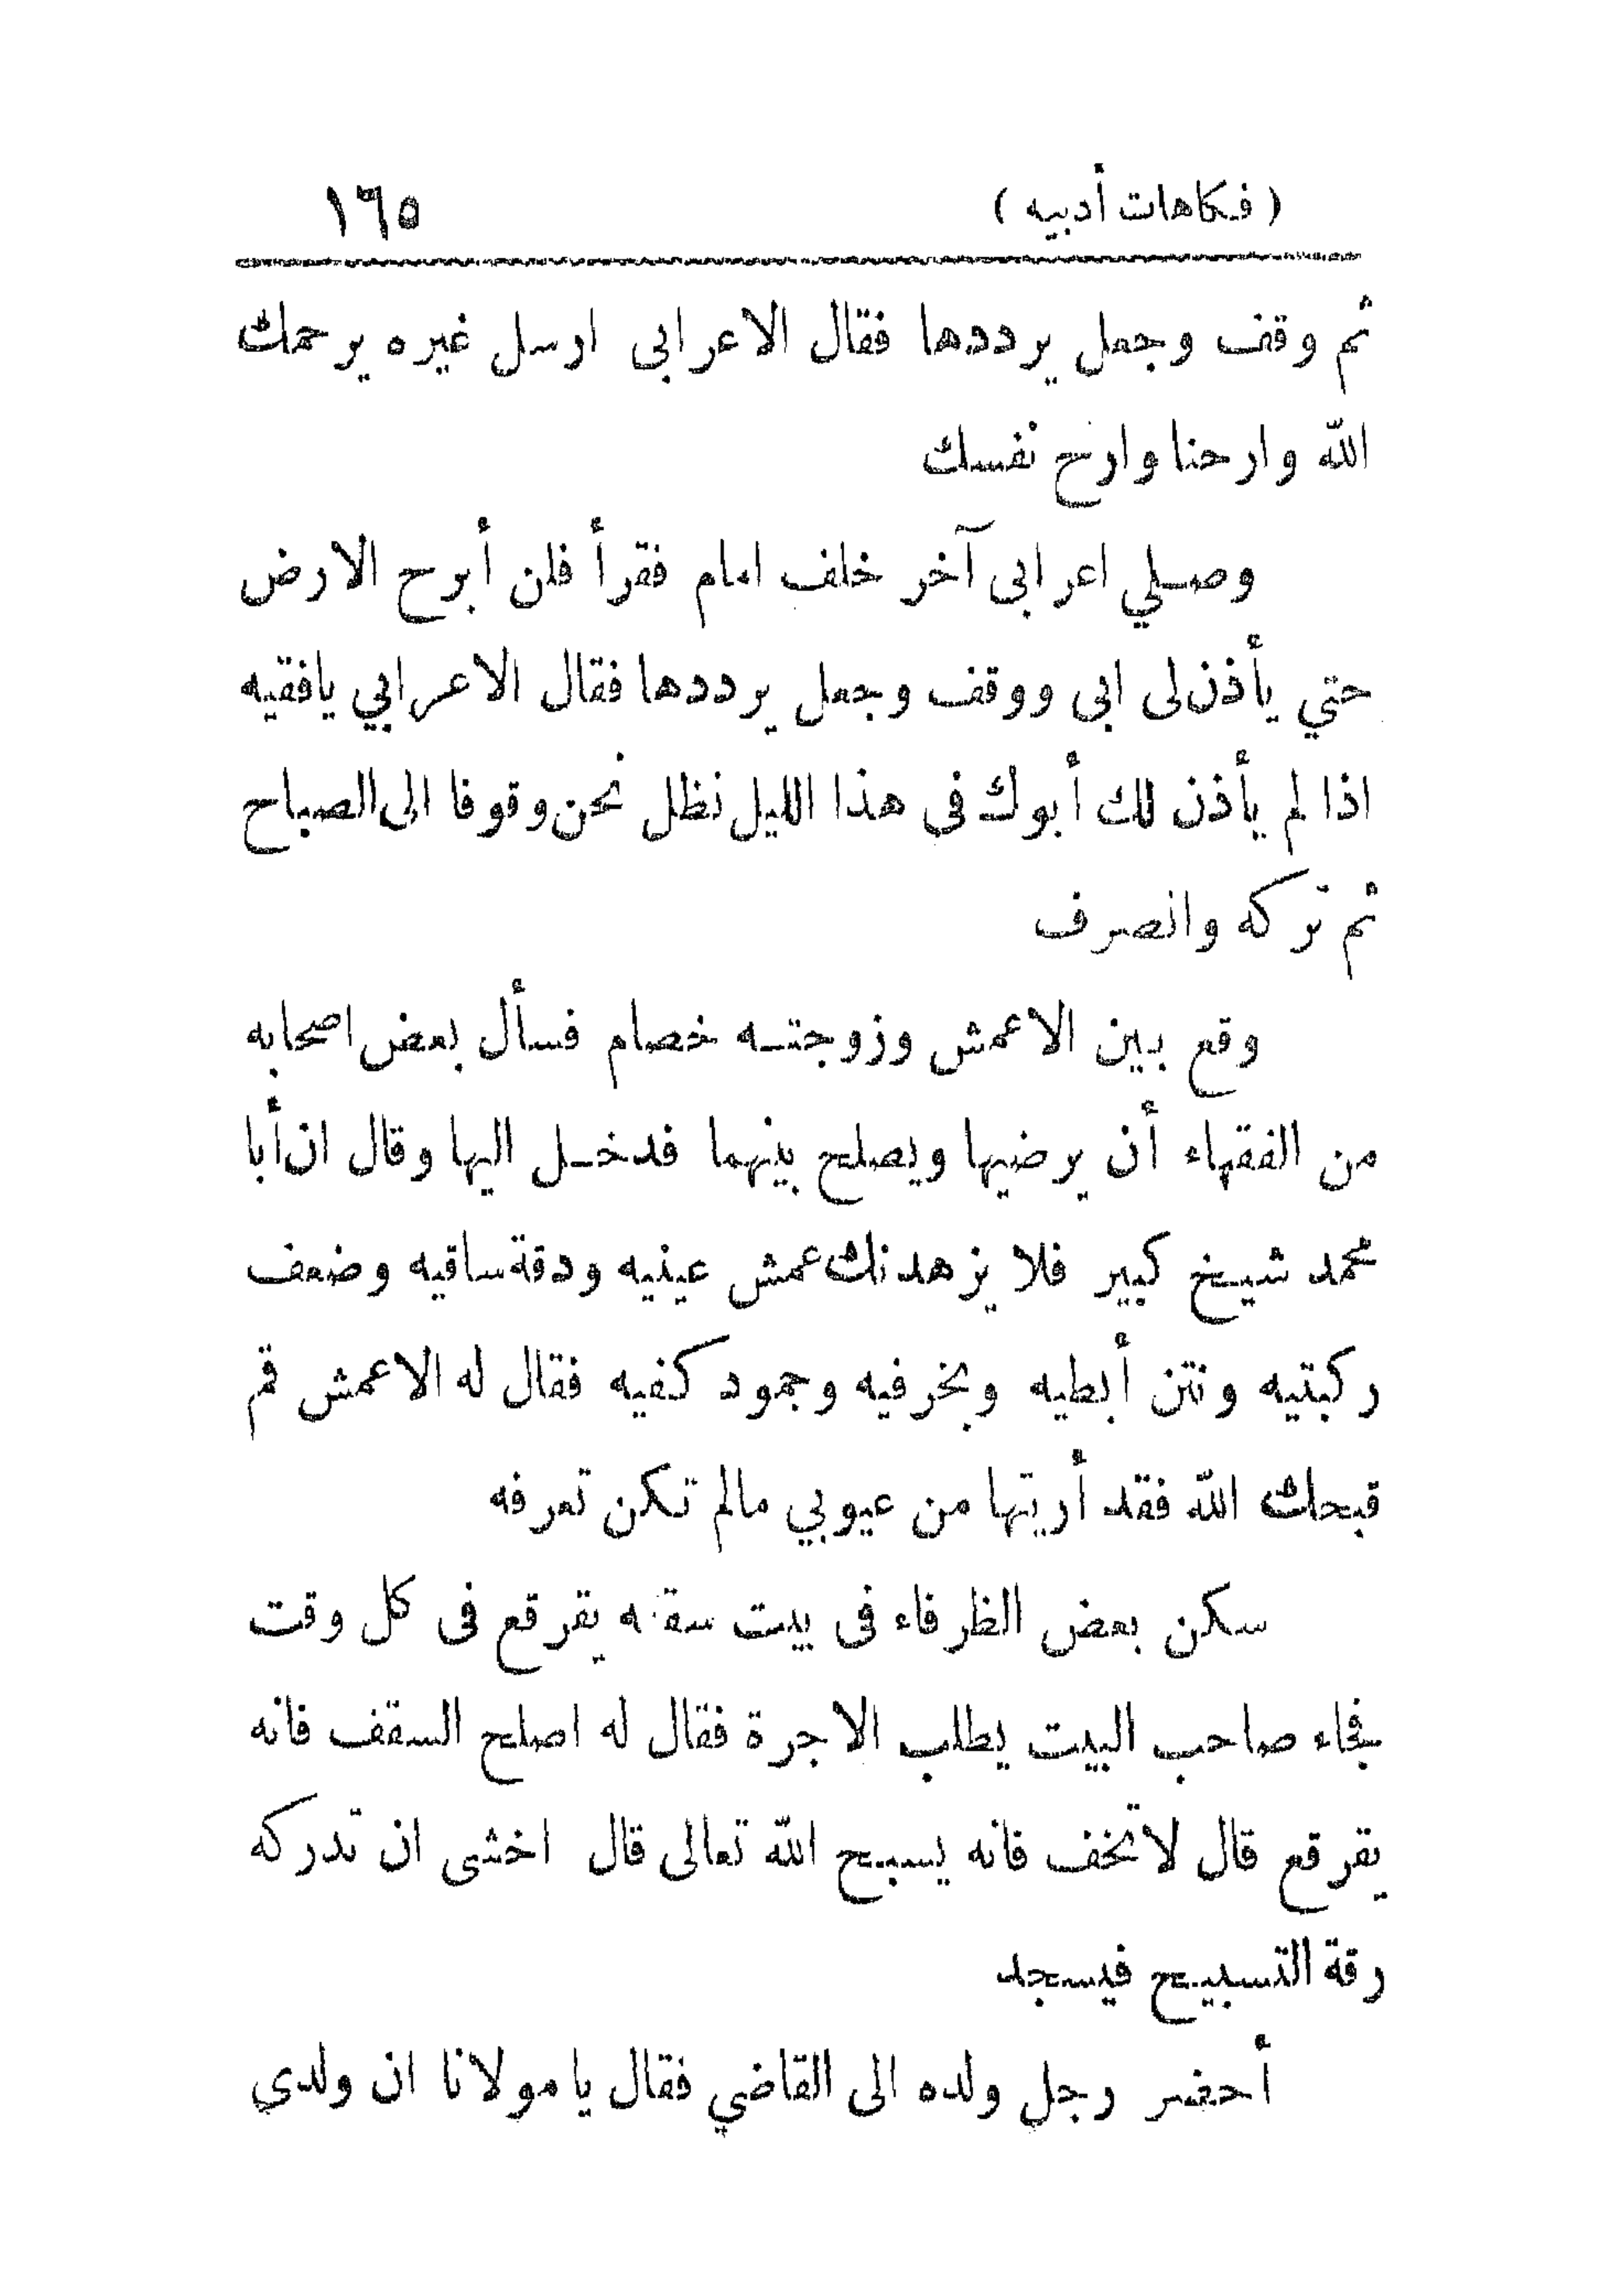 ( فكاهات أدبيه )
١٦٥
ثم وقف وجعل يرددها فقال الاعرابى ارسل غيره يرحمك
الله وارحنا وارح نفسك
وصلي اعرابى آخر خلف امام فقرأ فلن أبرح الارض
حتي يأذن لى ابى ووقف وجعل يرددها فقال الاعرابي يافقيه
اذا لم يأذن لك أبوك فى هذا الليل نظل نحن وقوفا الى الصباح
ثم تركه وانصرف
وقع بين الاعمش وزوجته خصام فسأل بعض اصحابه
من الفقهاء أن يرضيها ويصلح بينهما فدخل اليها وقال ان أبا
محمد شيخ كبير فلا يزهدنك عمش عينيه ودقة ساقيه وضعف
ركبتيه ونتن أبطيه وبخر فيه وجمود كفيه فقال له الاعمش قم
قبحك الله فقد أريتها من عيوبي مالم تكن تعرفه
سكن بعض الظرفاء فى بيت سقفه يقرقع فى كل وقت
فجاء صاحب البيت يطلب الاجرة فقال له اصلح السقف فانه
يقرقع قال لا تخف فانه يسبح الله تعالى قال اخشى ان تدركه
رقة التسبيح فيسجد
أحضر رجل ولده الى القاضي فقال يا مولانا ان ولدي